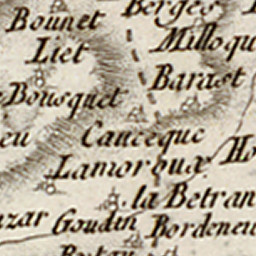 Berges
Bounet
Milloqu
Liet
Barast
Bousquet
eu
Canceque
Ho
Lamoroux
la Betran
zar
Goudin
Bordeneu